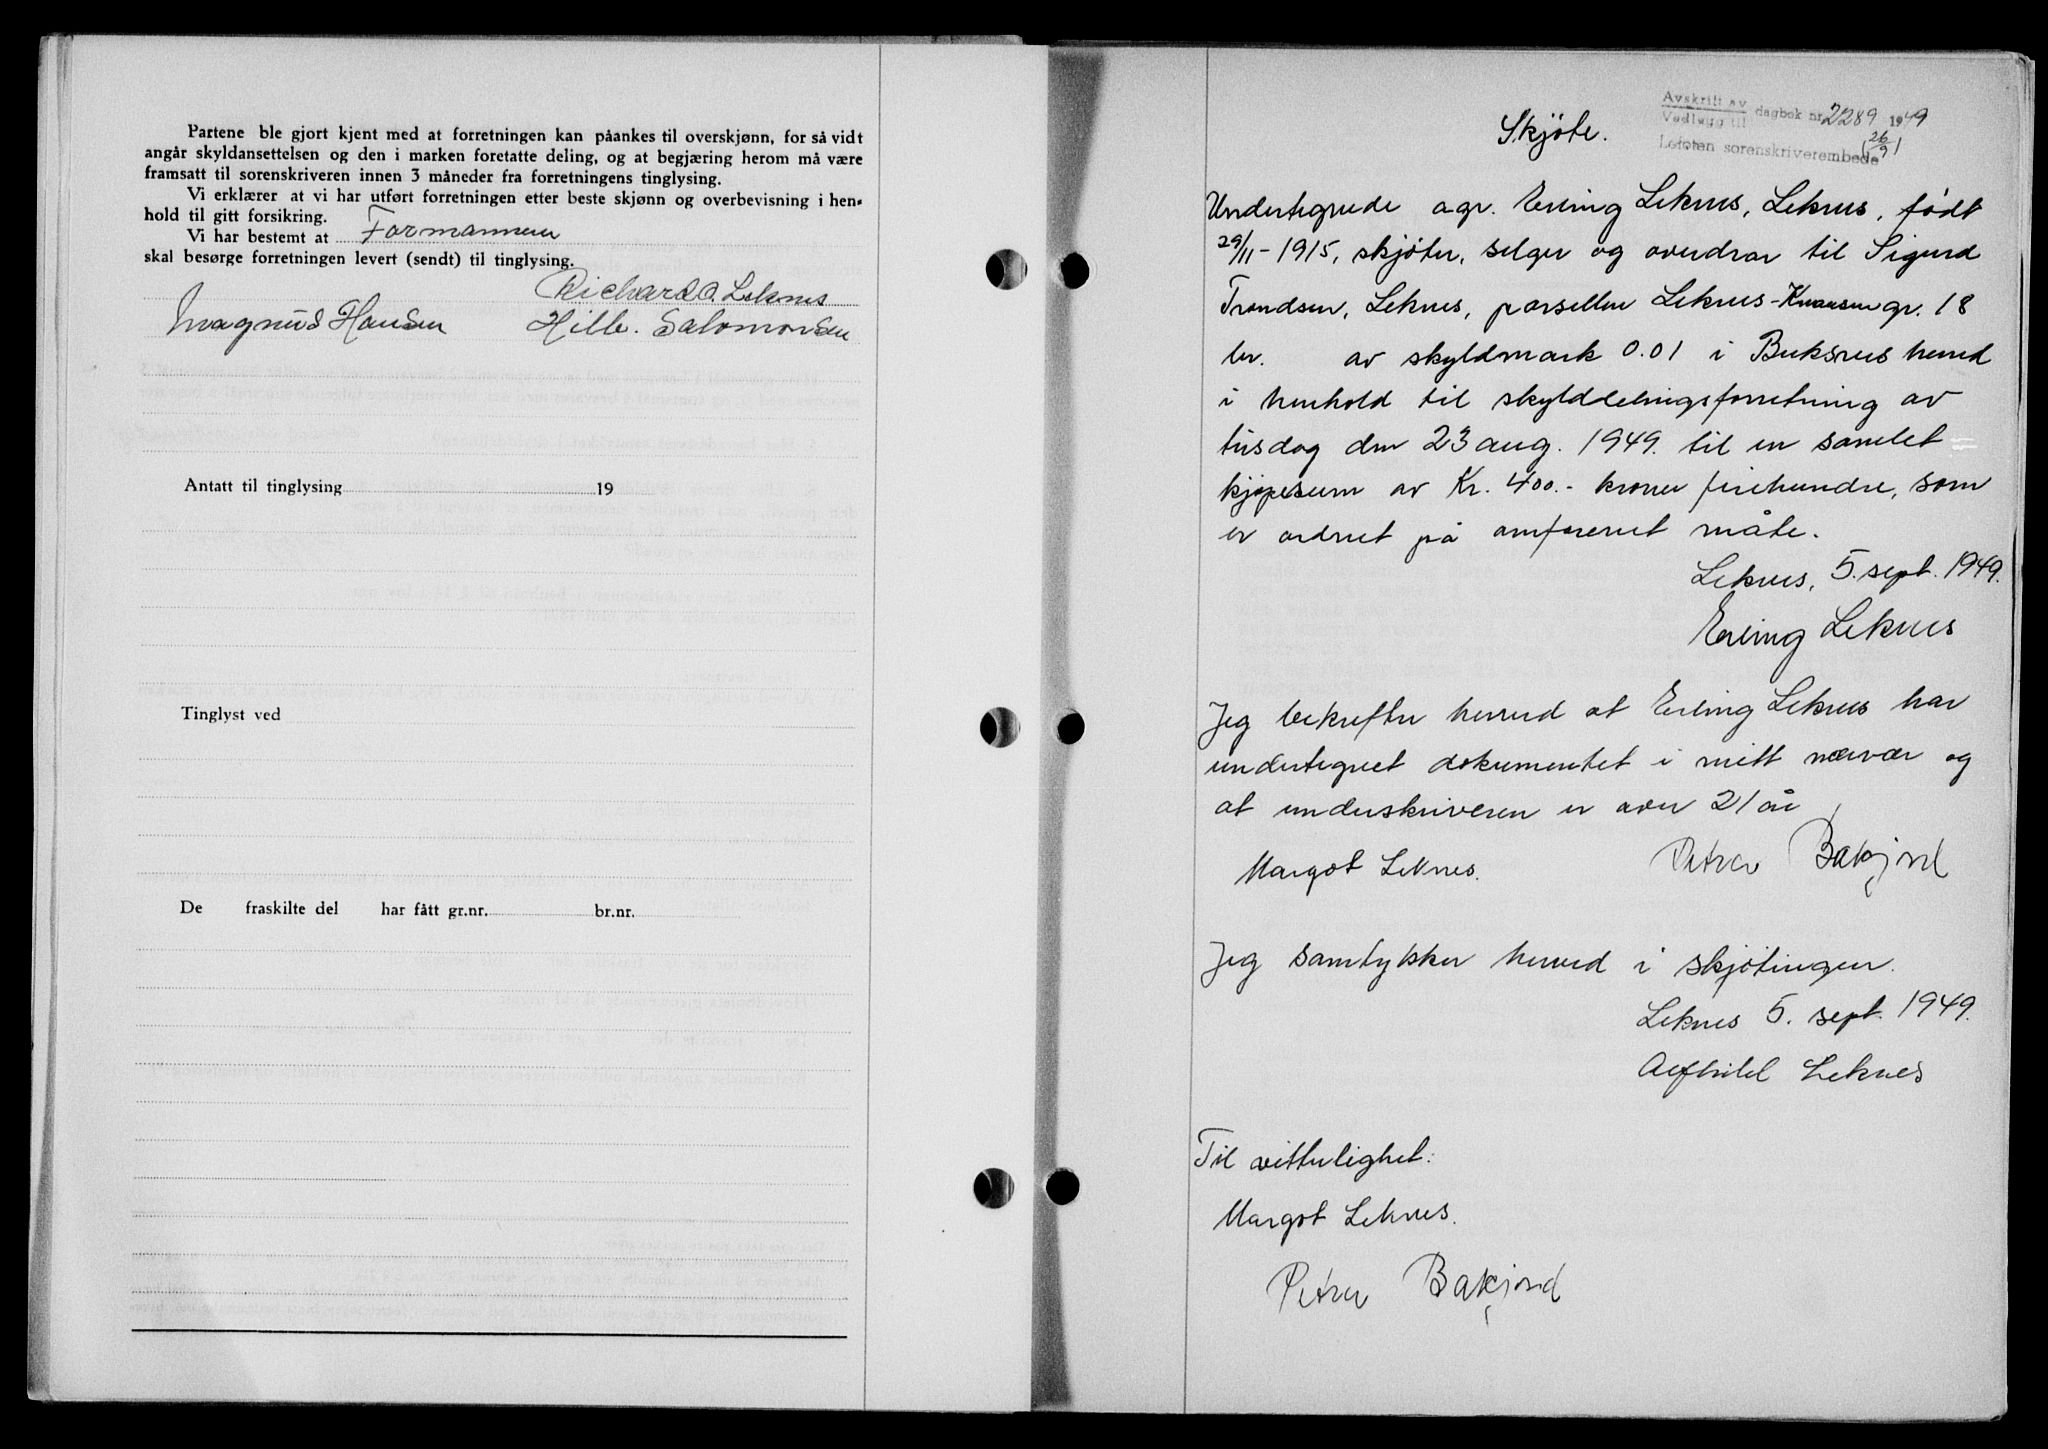 Partene ble gjort kjent med at forretningen kan påankes til overskjønn, for så vidt
angår skyldansettelsen og den i marken foretatte deling, og at begjæring herom må være
framsatt til sorenskriveren innen 3 måneder fra forretningens tinglysing.
Vi erklærer at vi har utført forretningen etter beste skjønn og overbevisning i hen-
hold til gitt forsikring.
Vi har bestemt at Formannen
skal besørge forretningen levert (sendt) til tinglysing.
Richard O. Leknes
Magnus Hansen Hilb. Salomonsen
Antatt til tinglysing 19
Tinglyst ved
De fraskilte del har fått gr.nr. br.nr.
Avskrift av
Vedlegg til dagbok nr 2289 1949
Lofoten sorenskriverembede 26/9
Skjöte.
Undertegnede agr. Erling Leknes, Leknes, födt
29/11-1915, skjöter, selger og overdrar til Sigurd
Trondsen, Leknes, parsellen Leknes- gr. 18
br. av skyldmark 0.01 i Buksnes herred
i henhold til skylddelingsforretning av
tirsdag den 23 aug. 1949. til en samlet
kjöpesum av Kr. 400.- kroner firehundre, som
er ordnet på omforenet måte.
Leknes, 5. sept. 1949.
Erling Leknes
Jeg bekrefter herved at Erling Leknes har
undertegnet dokumentet i mitt nærvær og
at underskriveren er over 21 år
Margot Leknes. Petter Bakjord
Jeg samtykker herved i skjötingen.
Leknes 5. sept. 1949.
Alfhild Leknes
Til vitterlighet:
Margot Leknes.
Petter Bakjord